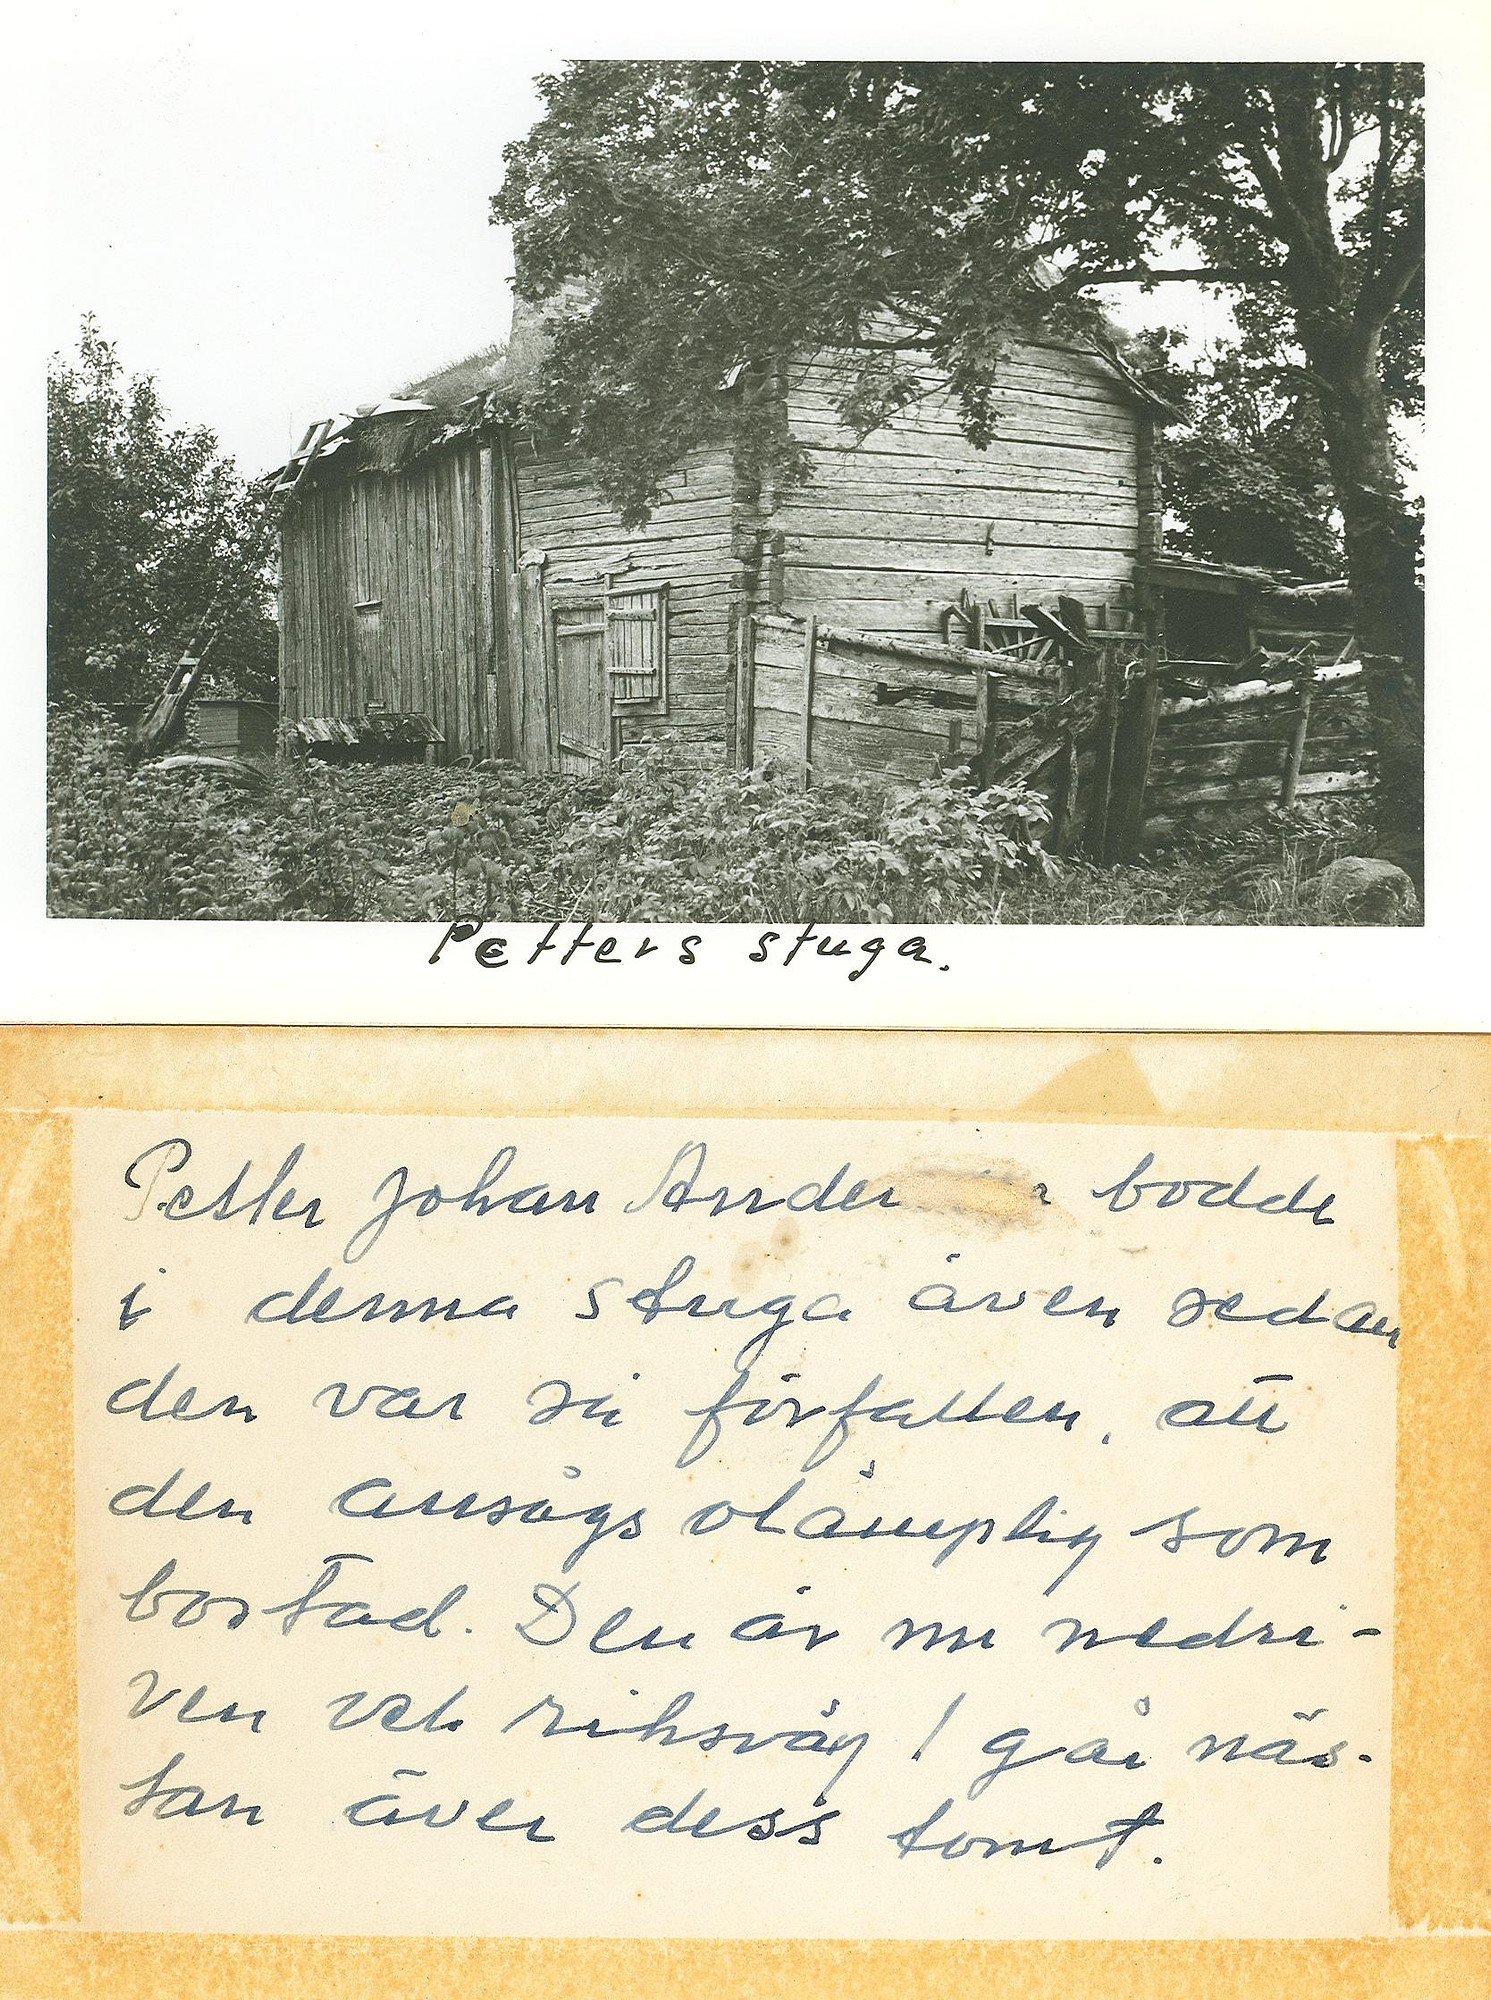 Petters stuga.
Petter Johan Ander r bodde
i denna stuga även sedan
den var så förfallen, att
den ansågs olämplig som
bostad. Den är nu nedri-
ven och riksväg 1 går näs-
tan över dess tomt.